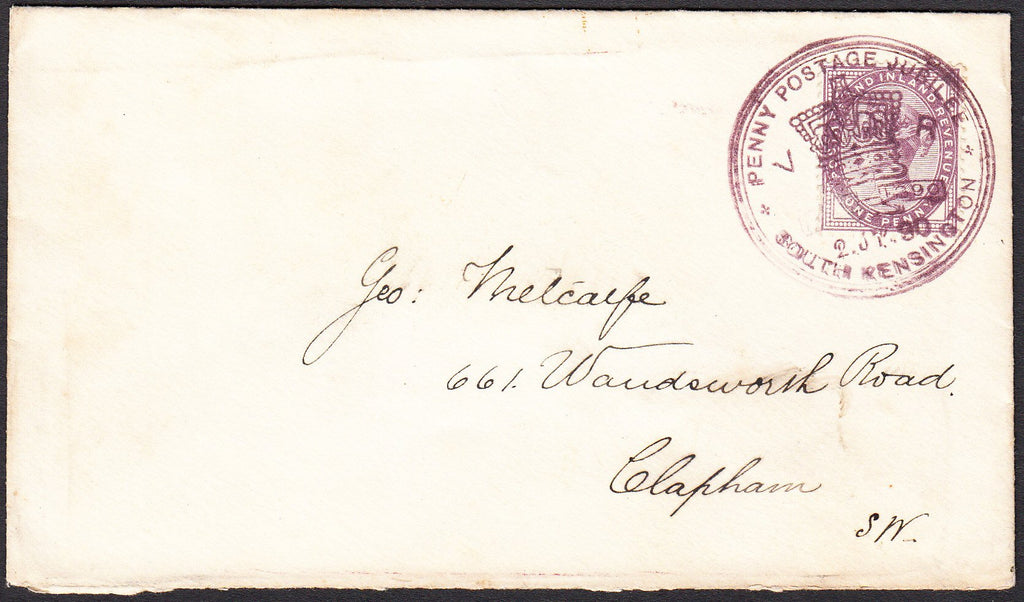 PENNY POSTAGE JUBILEE
AND INLAND REVENUE
V R
ONE PENNY
2.JY.90
* SOUTH KENSINGTON *
Geo: Metcalfe
661. Wandsworth Road.
Clapham
S W.